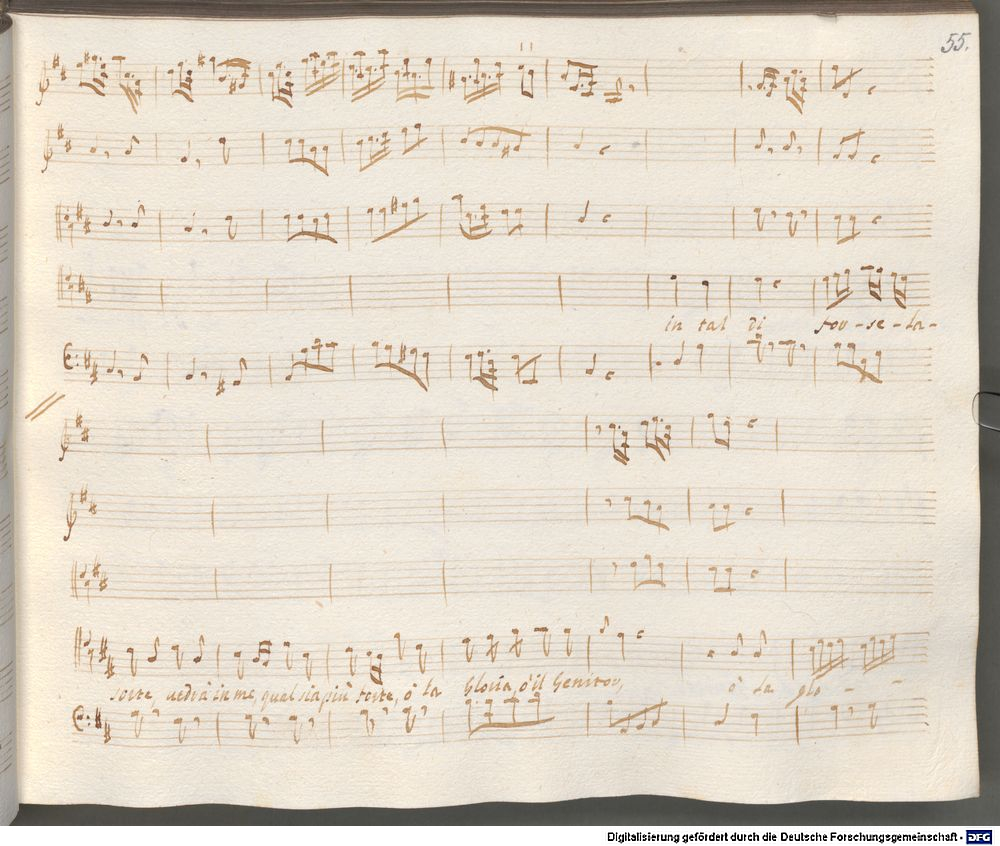 55.
in tal di
sorte, vedrà in me, qual sia più forte, ò la Gloria, ò il Genitor, ò la glo - -
Digitalisierung gefördert durch die Deutsche Forschungsgemeinschaft - DFG